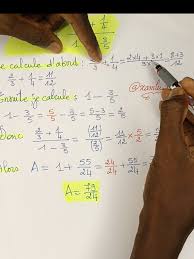 + 1/4
1 - 3/5
calcule d'abord : 2/3 + 1/4 = 2×4 + 3×1 / 3×4 = 8+3 / 12
2/3 + 1/4 = 11/12
je calcule : 1 - 3/5
1 - 3/5 = 5/5 - 3/5 = 2/5
Donc 2/3 + 1/4 / 1 - 3/5 = (11/12) / (2/5) = 11/12 × 5/2 = 55/24
Alors A = 1 + 55/24 = 24/24 + 55/24 =
A = 79/24